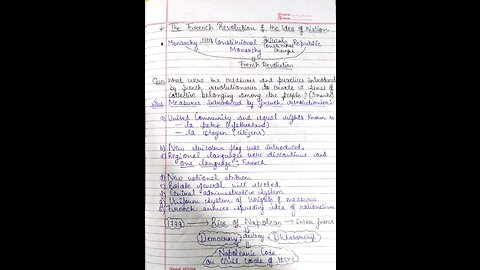 * The French Revolution & the Idea of Nation
* Monarchy 1789 Constitutional Monarchy Political & Constitutional Changes Republic
French Revolution
Ques. What were the measures and practices introduced
by french revolutionaries to create a sense of
collective belonging among the people? (5 marks)
Ans. Measures introduced by french revolutionaries:
a) United Community and equal rights known as
— la patrie (fatherland)
— la citoyen (citizens)
b) New tricolour flag was introduced.
c) Regional languages were discontinue and
one language: French
d) New national anthem
e) Estate general will elected
f) Central administrative system
g) Uniform system of weights & measures
h) French armies spreading idea of nationalism
1799 → Rise of Napoleon →
Democracy destroy Dictatorship
Napoleonic Code
Or Civil Code of 1804